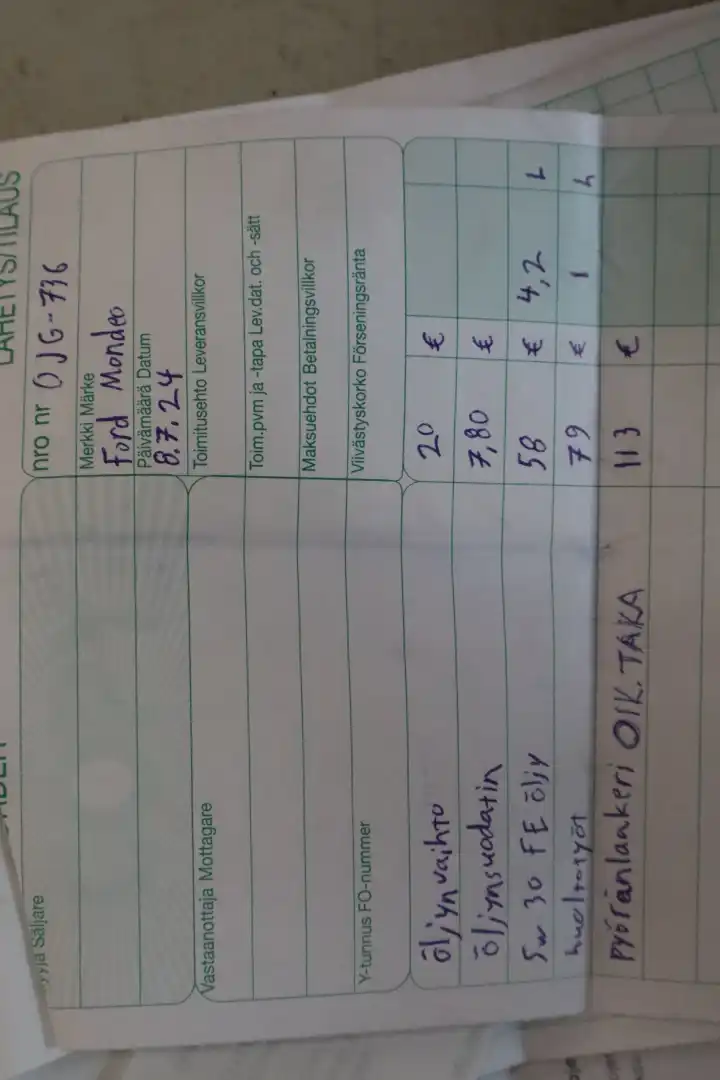 LÄHETYS/TILAUS
Säljare
nro nr OJG-736
Merkki Märke
Ford Mondeo
Päivämäärä Datum
8.7.24
Vastaanottaja Mottagare
Toimitusehto Leveransvillkor
Toim.pvm ja -tapa Lev.dat. och -sätt
Maksuehdot Betalningsvillkor
Y-tunnus FO-nummer
Viivästyskorko Förseningsränta
öljynvaihto 20 €
öljynsuodatin 7,80 €
5w 30 FE öljy 58 € 4,2 L
huoltotyöt 79 € 1 h
pyöränlankeri OIK. TAKA 113 €